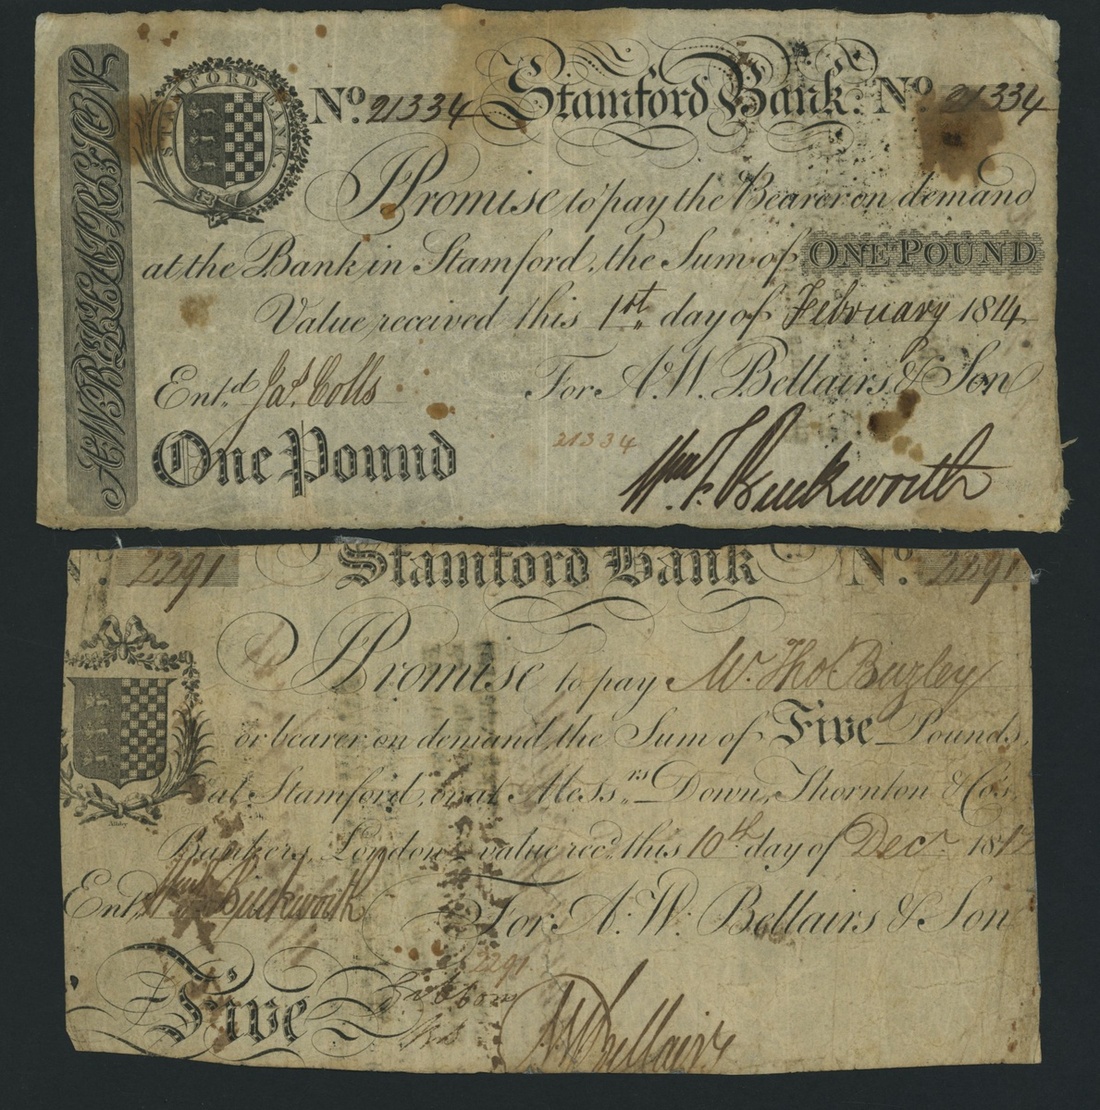 A.W. BELLAIRS & SON
STAMFORD BANK
No. 21334 Stamford Bank. No 21334
I Promise to pay the Bearer on demand
at the Bank in Stamford, the Sum of ONE POUND
Value received this 1st day of February 1814
Entd. Jas. Colls For A.W. Bellairs & Son
One Pound 21334 Wm. F. Buckworth
2291 Stamford Bank No. 2291
I Promise to pay Mr. Thos Bugley
or bearer on demand, the Sum of Five Pounds,
at Stamford, or at Messrs. Down, Thornton & Co's
Bankers, London, value recd. this 10th day of Decr 181
Entd. Buckworth For A.W. Bellairs & Son
2291
Five AW Bellairs